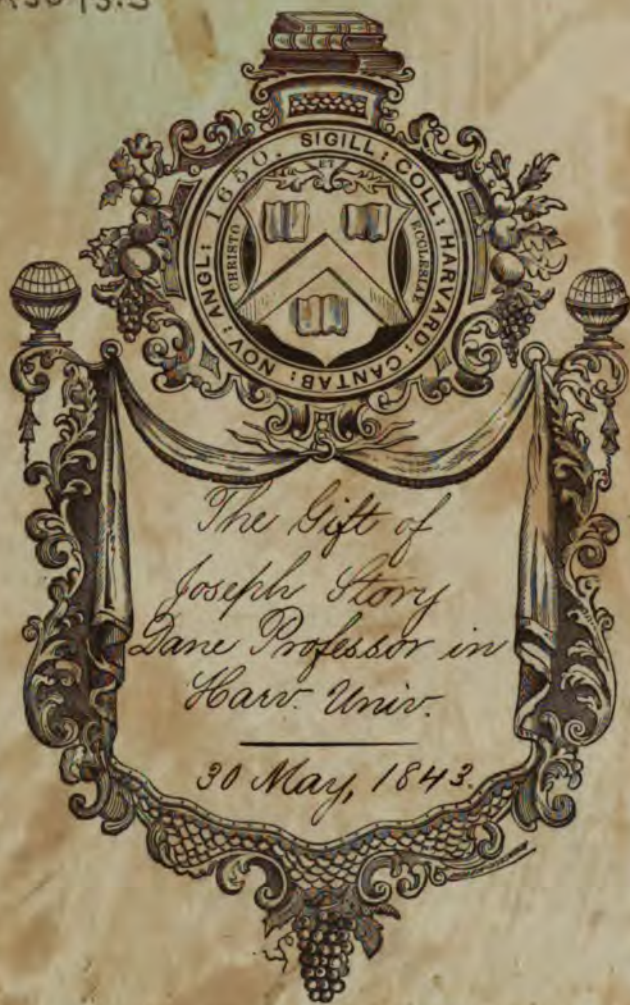 SIGILL: COLL: HARVARD: CANTAB: NOV: ANGL: 1650.
ET
CHRISTO
ECCLESIAE
The Gift of
Joseph Story
Dane Professor in
Harv. Univ.
30 May, 1843.